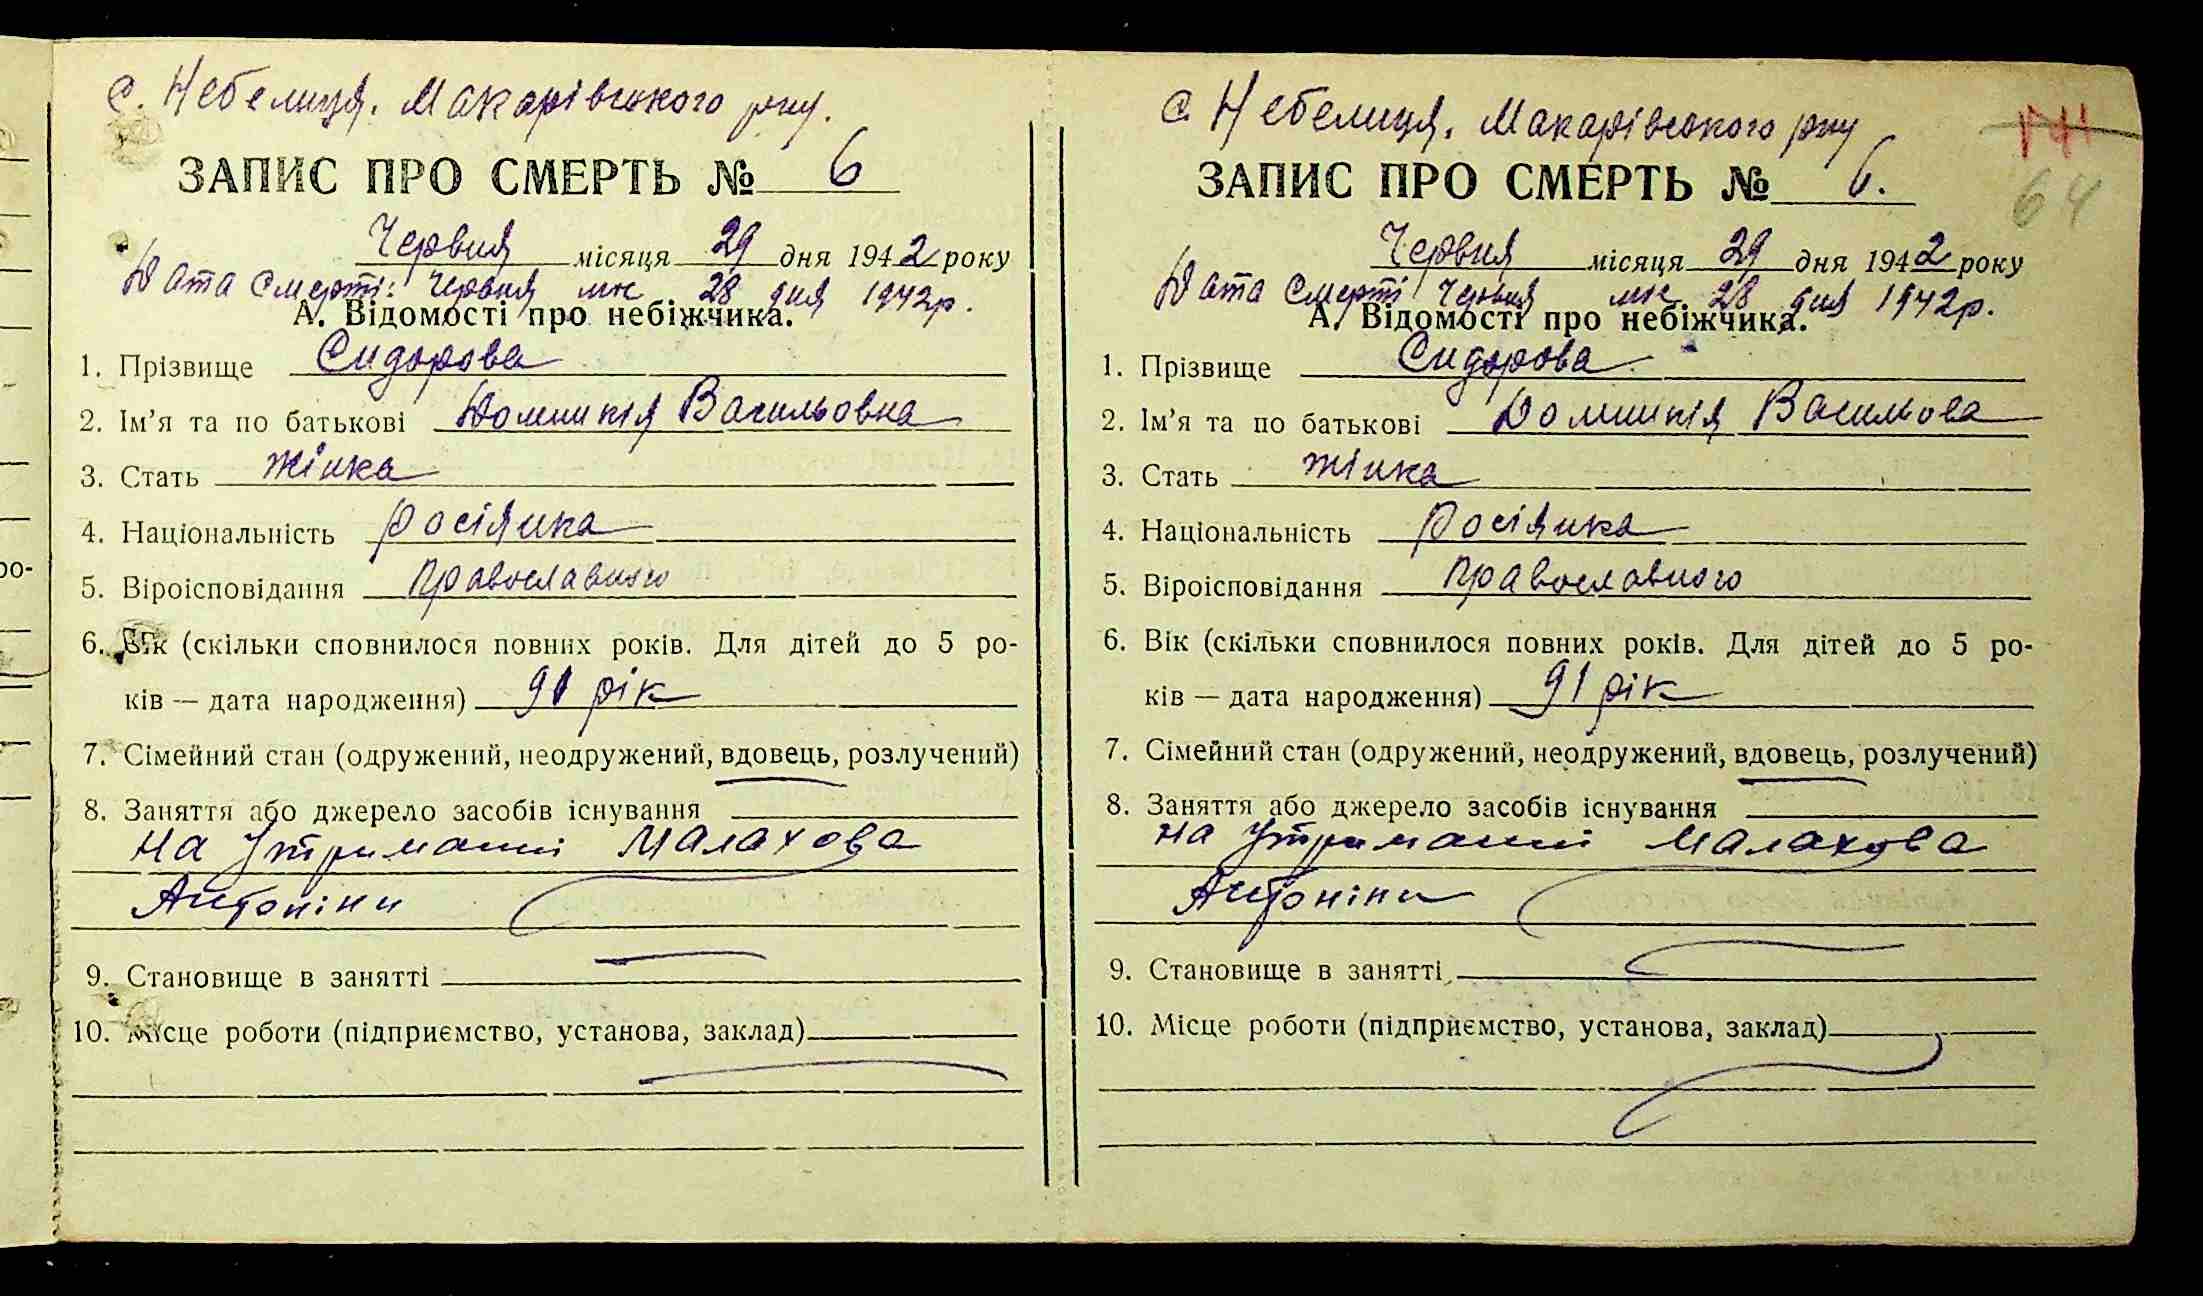 ро-
с. Небелиця. Макарівського р-ну.
ЗАПИС ПРО СМЕРТЬ № 6
Червня місяця 29 дня 1942 року
Дата Смерті: Червня м-ц 28 дня 1942р.
А. Відомості про небіжчика.
1. Прізвище Сидорова
2. Ім’я та по батькові Домникія Васильовна
3. Стать жінка
4. Національність росіянка
5. Віроісповідання православного
6. Вік (скільки сповнилося повних років. Для дітей до 5 ро-
ків — дата народження) 91 рік
7. Сімейний стан (одружений, неодружений, вдовець, розлучений)
8. Заняття або джерело засобів існування
на утриманні Малахова
Антоніни
9. Становище в занятті
10. Місце роботи (підприємство, установа, заклад)
с. Небелиця. Макарівського р-ну
64
ЗАПИС ПРО СМЕРТЬ № 6.
Червня місяця 29 дня 1942 року
Дата Смерті Червня м-ц 28 дня 1942р.
А. Відомості про небіжчика.
1. Прізвище Сидорова
2. Ім’я та по батькові Домникія Васильова
3. Стать жінка
4. Національність росіянка
5. Віроісповідання православного
6. Вік (скільки сповнилося повних років. Для дітей до 5 ро-
ків — дата народження) 91 рік
7. Сімейний стан (одружений, неодружений, вдовець, розлучений)
8. Заняття або джерело засобів існування
на утриманні Малахова
Антоніни
9. Становище в занятті
10. Місце роботи (підприємство, установа, заклад)